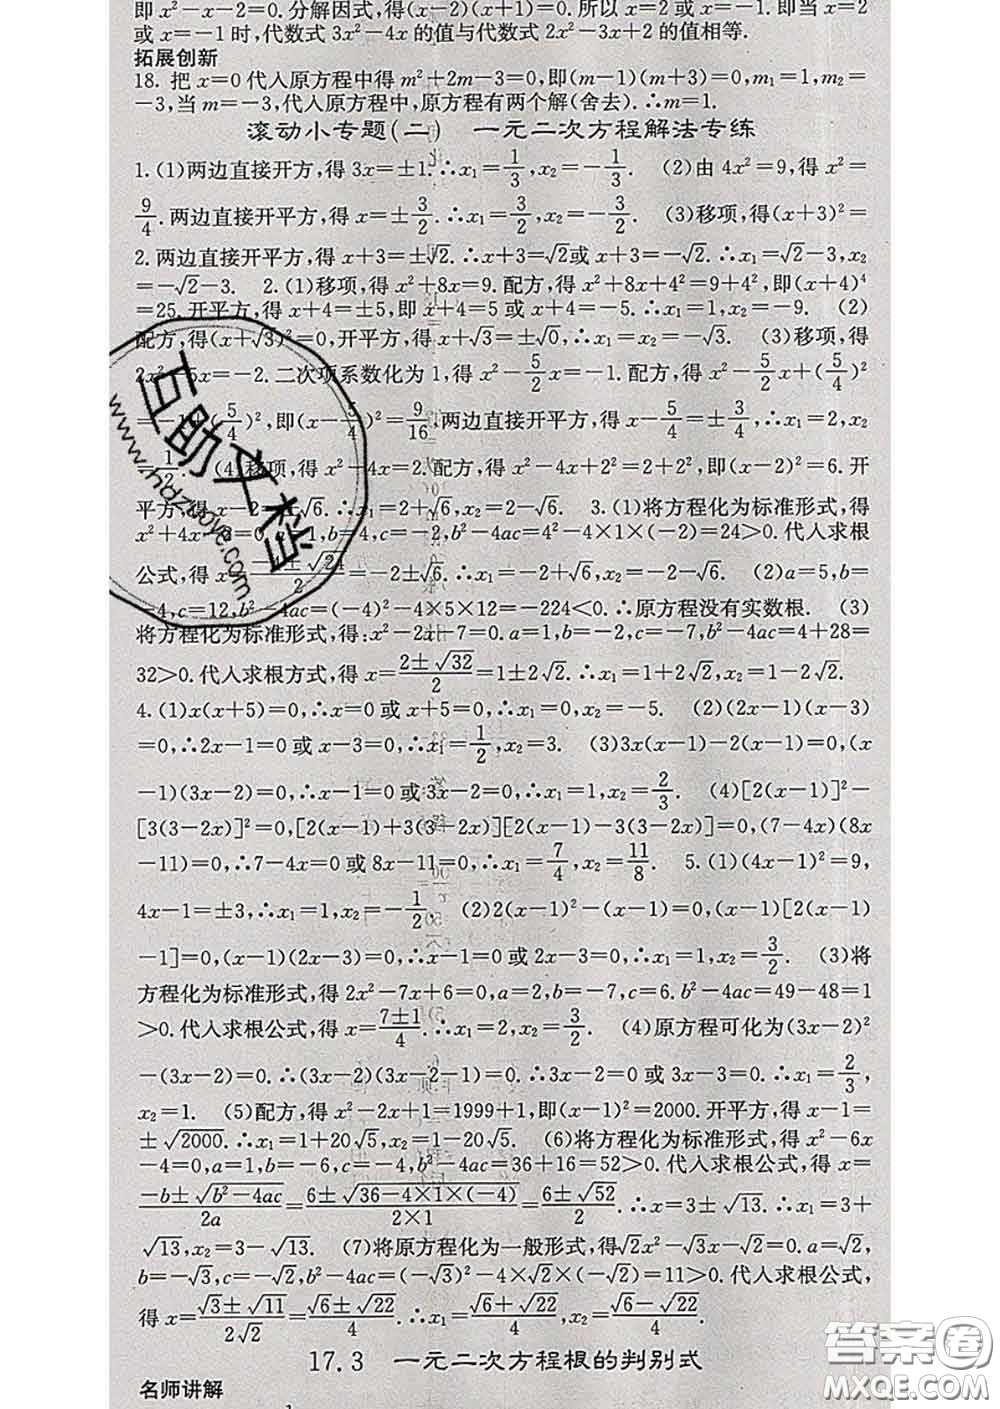 即 x²－x－2＝0. 分解因式,得(x－2)(x＋1)＝0. 所以 x＝2 或 x＝－1. 即当 x＝2
或 x＝－1 时,代数式 3x²－4x 的值与代数式 2x²－3x＋2 的值相等.
拓展创新
18. 把 x＝0 代入原方程中得 m²＋2m－3＝0,即(m－1)(m＋3)＝0,m₁＝1,m₂＝
－3,当 m＝－3,代入原方程中,原方程有两个解(舍去).∴m＝1.
滚动小专题(二) 一元二次方程解法专练
1. (1)两边直接开方,得 3x＝±1.∴x₁＝1/3,x₂＝－1/3. (2)由 4x²＝9,得 x²＝
9/4. 两边直接开平方,得 x＝±3/2.∴x₁＝3/2,x₂＝－3/2. (3)移项,得(x＋3)²＝
2. 两边直接开平方,得 x＋3＝±√2.∴x＋3＝√2或 x＋3＝－√2.∴x₁＝√2－3,x₂＝
－√2－3. 2. (1)移项,得 x²＋8x＝9. 配方,得 x²＋8x＋4²＝9＋4²,即(x＋4)⁴
＝25. 开平方,得 x＋4＝±5,即 x＋4＝5 或 x＋4＝－5.∴x₁＝1,x₂＝－9. (2)
配方,得(x＋√3)²＝0,开平方,得 x＋√3＝±√0,∴x₁＝x₂＝－√3. (3)移项,得
2x²－5x＝－2. 二次项系数化为 1,得 x²－5/2x＝－1. 配方,得 x²－5/2x＋(5/4)²
(5/4)²,即(x－5/4)²＝9/16. 两边直接开平方,得 x－5/4＝±3/4,∴x₁＝2,x₂
＝1/2. (4)移项,得 x²－4x＝2. 配方,得 x²－4x＋2²＝2＋2²,即(x－2)²＝6. 开
平方,得 x－2＝±√6.∴x₁＝2＋√6,x₂＝2－√6. 3. (1)将方程化为标准形式,得
x²＋4x－2＝0,a＝1,b＝4,c＝－2,b²－4ac＝4²－4×1×(－2)＝24＞0. 代入求根
公式,得 x＝(－4±√24)/2＝－2±√6.∴x₁＝－2＋√6,x₂＝－2－√6. (2)a＝5,b＝
－4,c＝12,b²－4ac＝(－4)²－4×5×12＝－224＜0.∴原方程没有实数根. (3)
将方程化为标准形式,得:x²－2x－7＝0. a＝1,b＝－2,c＝－7,b²－4ac＝4＋28＝
32＞0. 代入求根方式,得 x＝(2±√32)/2＝1±2√2.∴x₁＝1＋2√2,x₂＝1－2√2.
4. (1)x(x＋5)＝0,∴x＝0 或 x＋5＝0,∴x₁＝0,x₂＝－5. (2)(2x－1)(x－3)
＝0,∴2x－1＝0 或 x－3＝0,∴x₁＝1/2,x₂＝3. (3)3x(x－1)－2(x－1)＝0,(x
－1)(3x－2)＝0,∴x－1＝0 或 3x－2＝0,∴x₁＝1,x₂＝2/3. (4)[2(x－1)]²－
[3(3－2x)]²＝0,[2(x－1)＋3(3－2x)][2(x－1)－3(3－2x)]＝0,(7－4x)(8x
－11)＝0,∴7－4x＝0 或 8x－11＝0,∴x₁＝7/4,x₂＝11/8. 5. (1)(4x－1)²＝9,
4x－1＝±3,∴x₁＝1,x₂＝－1/2. (2)2(x－1)²－(x－1)＝0,(x－1)[2(x－1)
－1]＝0,(x－1)(2x－3)＝0,∴x－1＝0 或 2x－3＝0,∴x₁＝1,x₂＝3/2. (3)将
方程化为标准形式,得 2x²－7x＋6＝0,a＝2,b＝－7,c＝6. b²－4ac＝49－48＝1
＞0. 代入求根公式,得 x＝(7±1)/4.∴x₁＝2,x₂＝3/2. (4)原方程可化为(3x－2)²
－(3x－2)＝0.∴(3x－2)(3x－2－1)＝0.∴3x－2＝0 或 3x－3＝0.∴x₁＝2/3,
x₂＝1. (5)配方,得 x²－2x＋1＝1999＋1,即(x－1)²＝2000. 开平方,得 x－1＝
±√2000.∴x₁＝1＋20√5,x₂＝1－20√5. (6)将方程化为标准形式,得 x²－6x
－4＝0,a＝1,b＝－6,c＝－4,b²－4ac＝36＋16＝52＞0. 代入求根公式,得 x＝
(－b±√(b²－4ac))/2a＝(6±√(36－4×1×(－4)))/(2×1)＝(6±√52)/2.∴x＝3±√13.∴x₁＝3＋
√13,x₂＝3－√13. (7)将原方程化为一般形式,得√2x²－√3x－√2＝0. a＝√2,
b＝－√3,c＝－√2,b²－4ac＝(－√3)²－4×√2×(－√2)＝11＞0. 代入求根公式,
得 x＝(√3±√11)/2√2＝(√6±√22)/4.∴x₁＝(√6＋√22)/4,x₂＝(√6－√22)/4.
17.3 一元二次方程根的判别式
名师讲解
互助文档
www.hdzuoye.com
答案圈
MXQE.COM